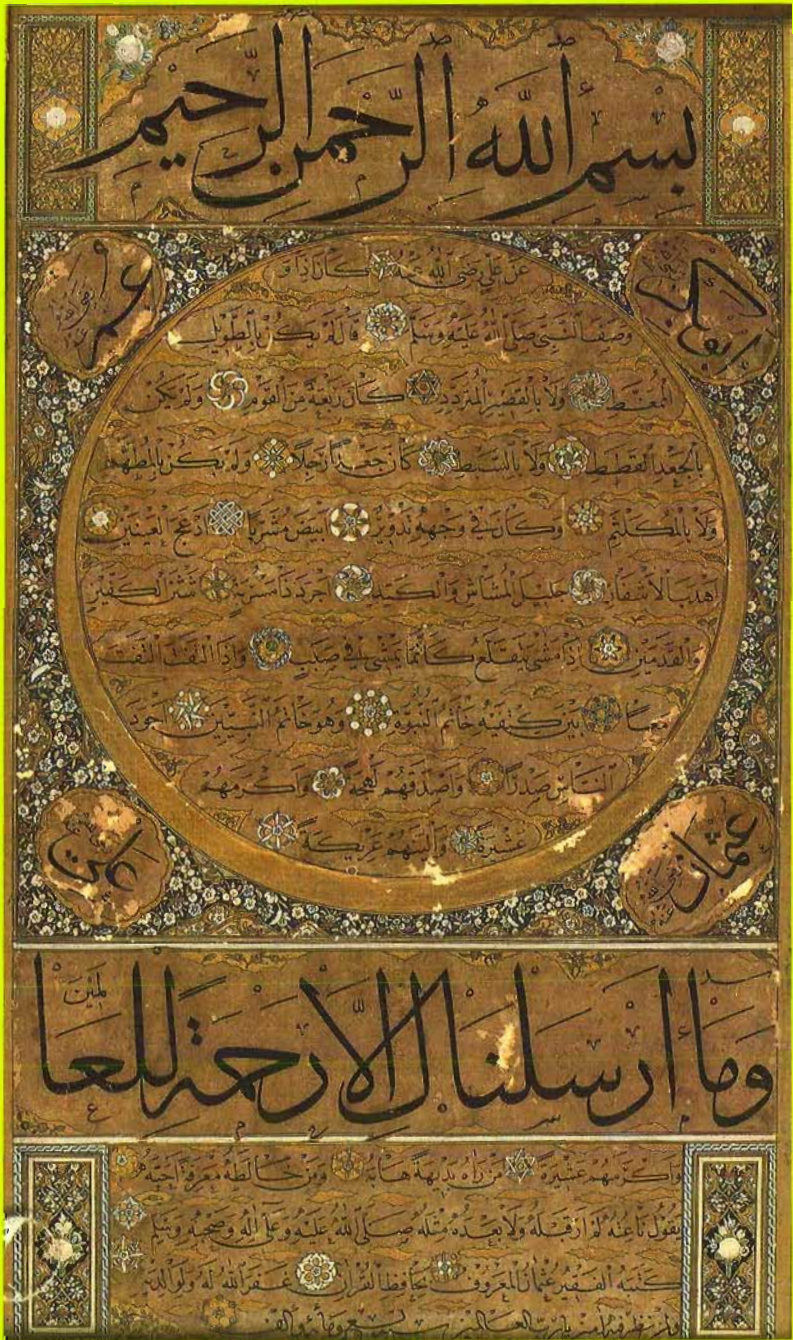 بسم الله الرحمن الرحيم
ابو بكر رضي الله عنه
عمر رضي الله عنه
عن علي رضي الله عنه كان اذا
وصف النبي صلى الله عليه وسلم قال لم يكن بالطويل
الممغط ولا بالقصير المتردد كان ربعة من القوم ولم يكن
بالجعد القطط ولا بالسبط كان جعدا رجلا ولم يكن بالمطهم
ولا بالمكلثم وكان في وجهه تدوير ابيض مشربا ادعج العينين
اهدب الاشفار جليل المشاش والكتد اجرد ذا مسربة شثن الكفين
والقدمين اذا مشى يتقلع كانما يمشي في صبب واذا التفت التفت
معا بين كتفيه خاتم النبوة وهو خاتم النبيين اجود
الناس صدرا واصدقهم لهجة واكرمهم
عشيرة والينهم عريكة
عثمان رضي الله عنه
علي
وما أرسلناك الا رحمة للعالمين
واكرمهم عشيرة من رآه بديهة هابه ومن خالطه معرفة احبه
يقول ناعته لم ار قبله ولا بعده مثله صلى الله عليه وعلى اله وصحبه وسلم
كتبه الفقير عثمان المعروف بحافظ القرآن غفر الله له ولوالديه